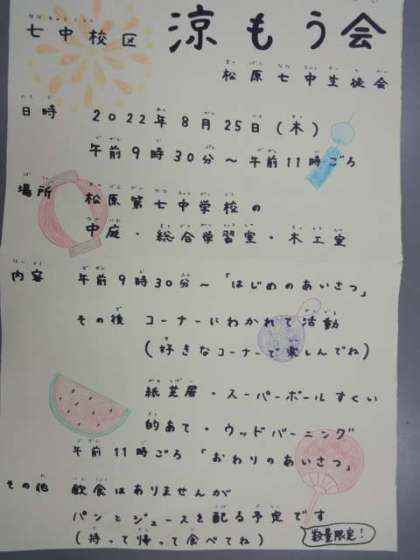 七中校区 涼もう会
松原七中生徒会
日時 2022年8月25日(木)
午前9時30分～午前11時ごろ
場所 松原第七中学校の
中庭・総合学習室・木工室
内容 午前9時30分～「はじめのあいさつ」
その後 コーナーにわかれて活動
(好きなコーナーで楽しんでね)
紙芝居・スーパーボールすくい
的あて・ウッドバーニング
午前11時ごろ「おわりのあいさつ」
その他 飲食はありませんが
パンとジュースを配る予定です
(持って帰って食べてね) 数量限定!